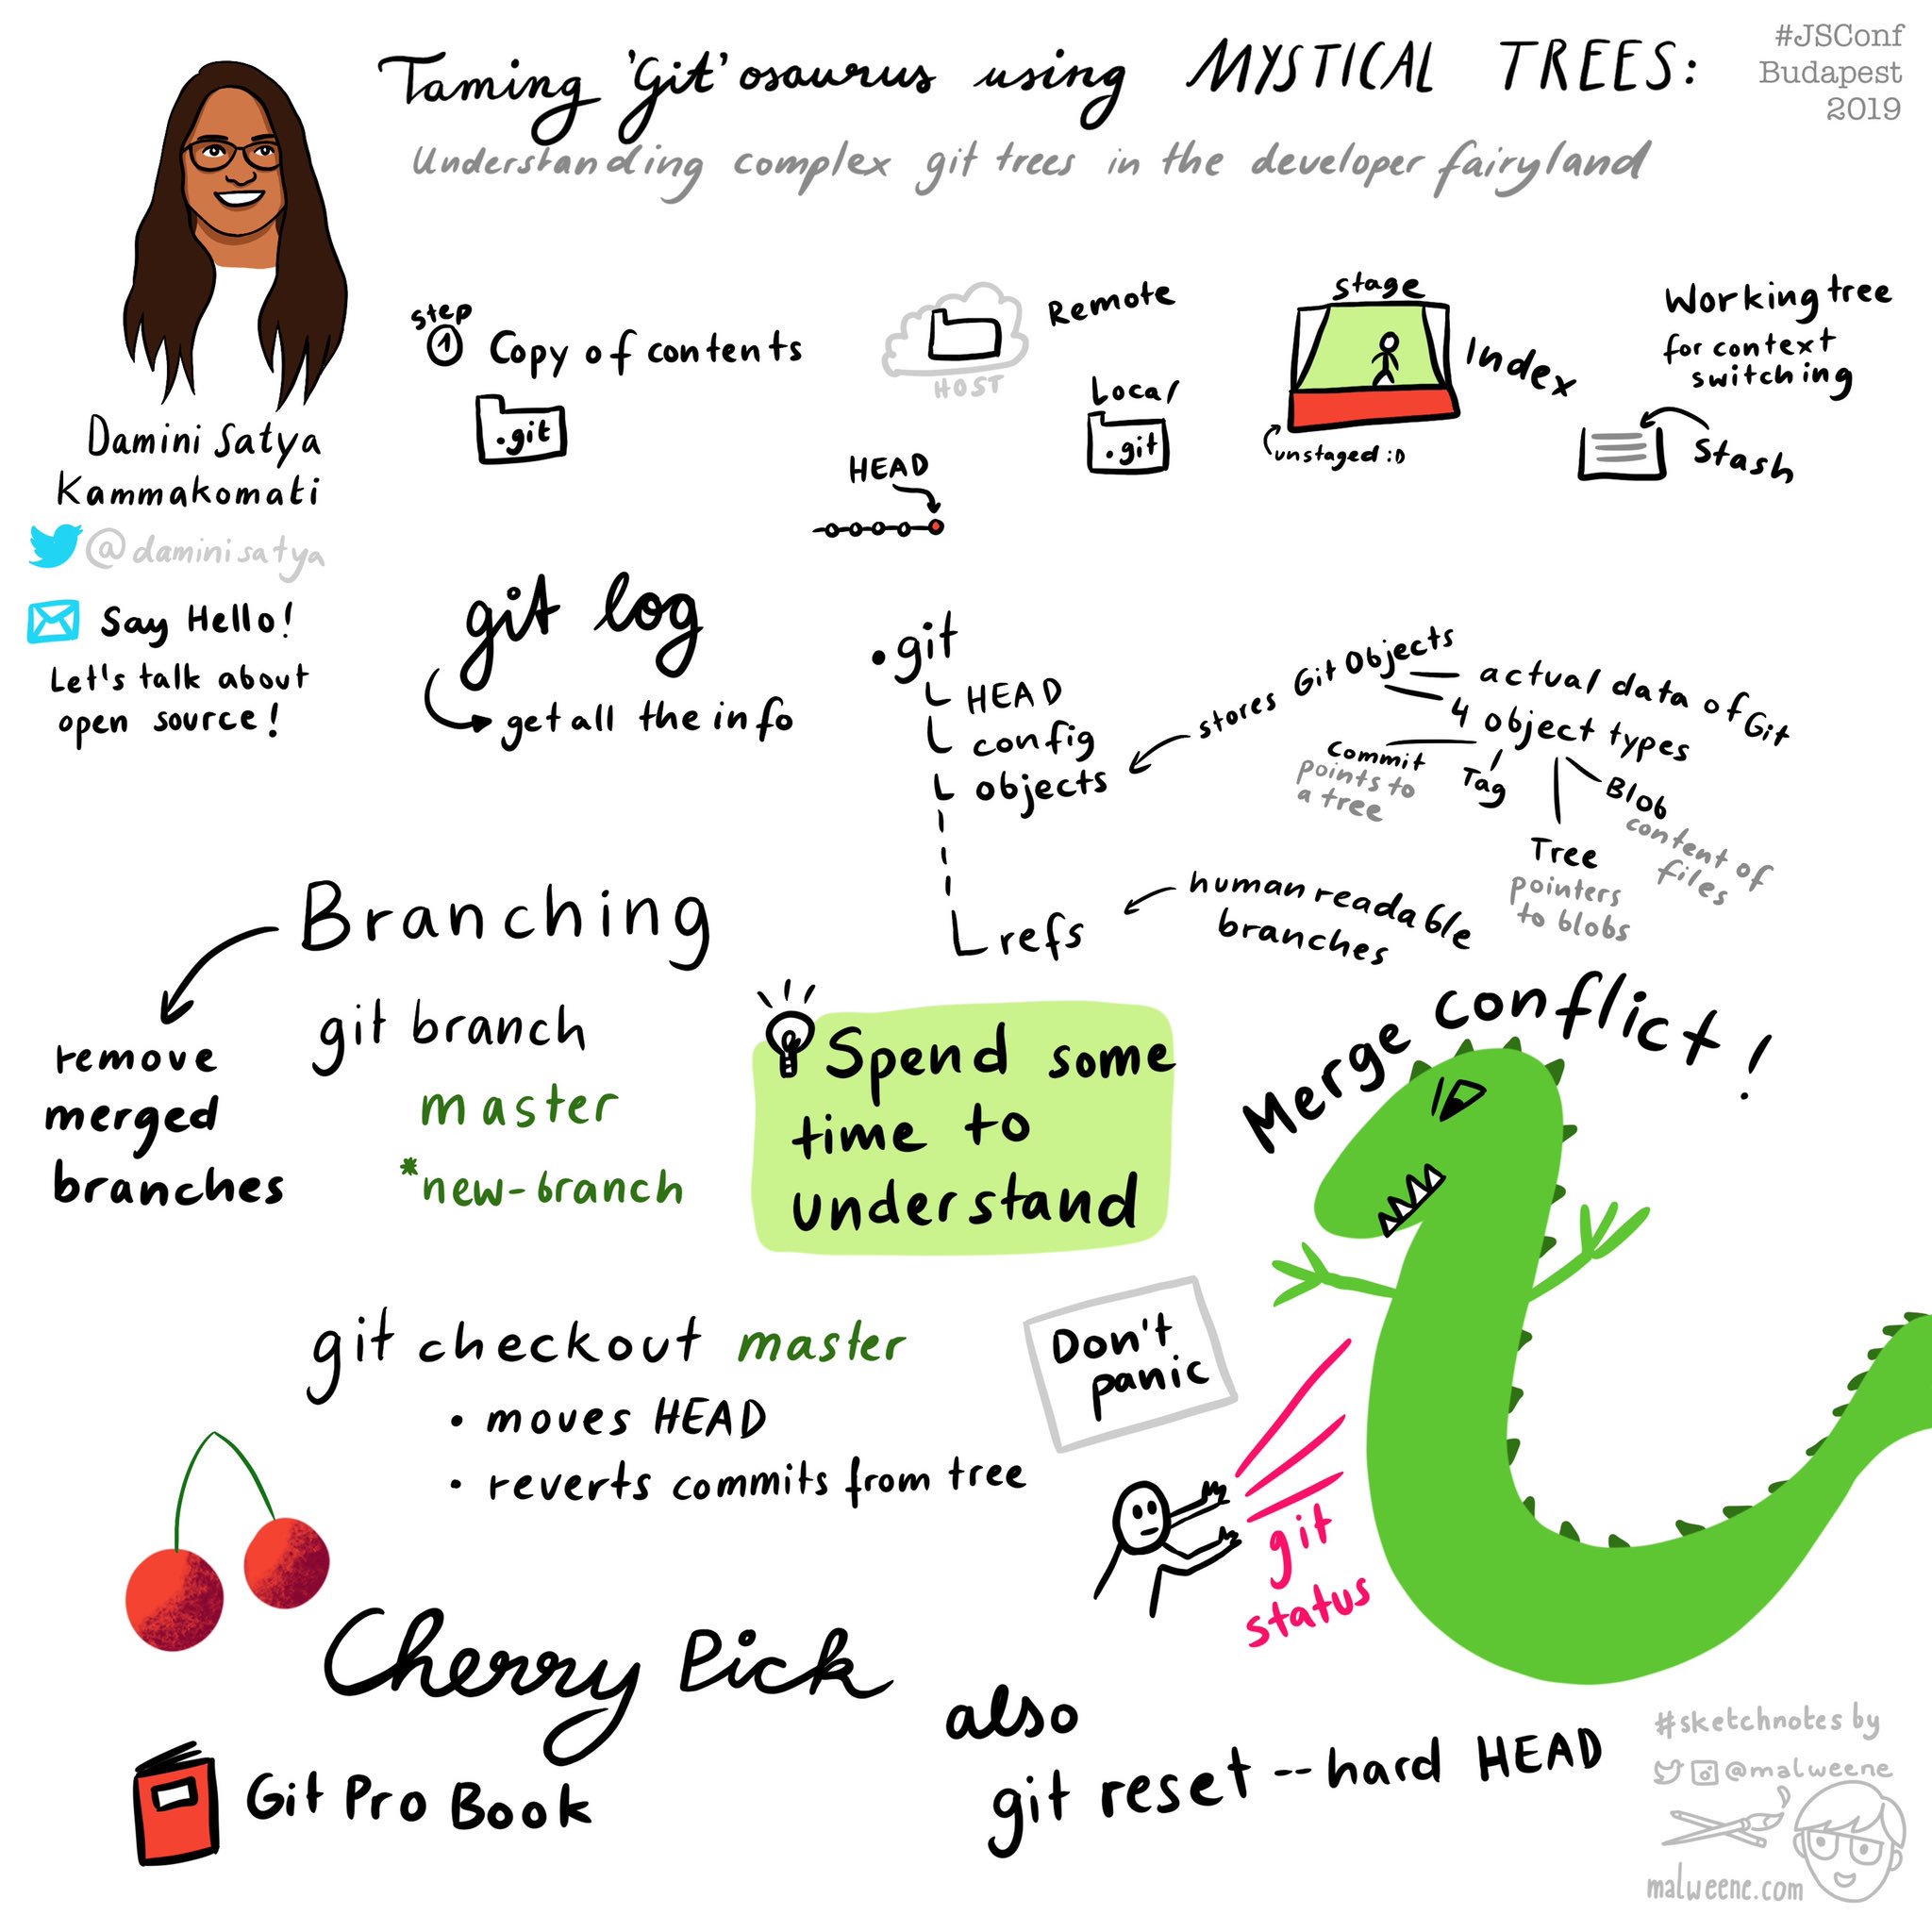 Taming 'git'osaurus using MYSTICAL TREES:
Understanding complex git trees in the developer fairyland
#JSConf
Budapest
2019
Damini Satya
Kammakomati
@daminisatya
Say Hello!
Let's talk about
open source!
step
1 Copy of contents
.git
HOST
Remote
Local
.git
HEAD
stage
Index
unstaged :D
Working tree
for context
switching
Stash
git log
get all the info
.git
HEAD
config
objects
refs
stores Git Objects
actual data of Git
4 object types
Commit
points to
a tree
Tag
Tree
pointers
to blobs
Blob
content of
files
human readable
branches
Branching
remove
merged
branches
git branch
master
*new-branch
Spend some
time to
understand
Merge conflict!
git checkout master
• moves HEAD
• reverts commits from tree
Don't
panic
git
status
Cherry Pick
also
git reset --hard HEAD
Git Pro Book
#sketchnotes by
@malweene
malweene.com